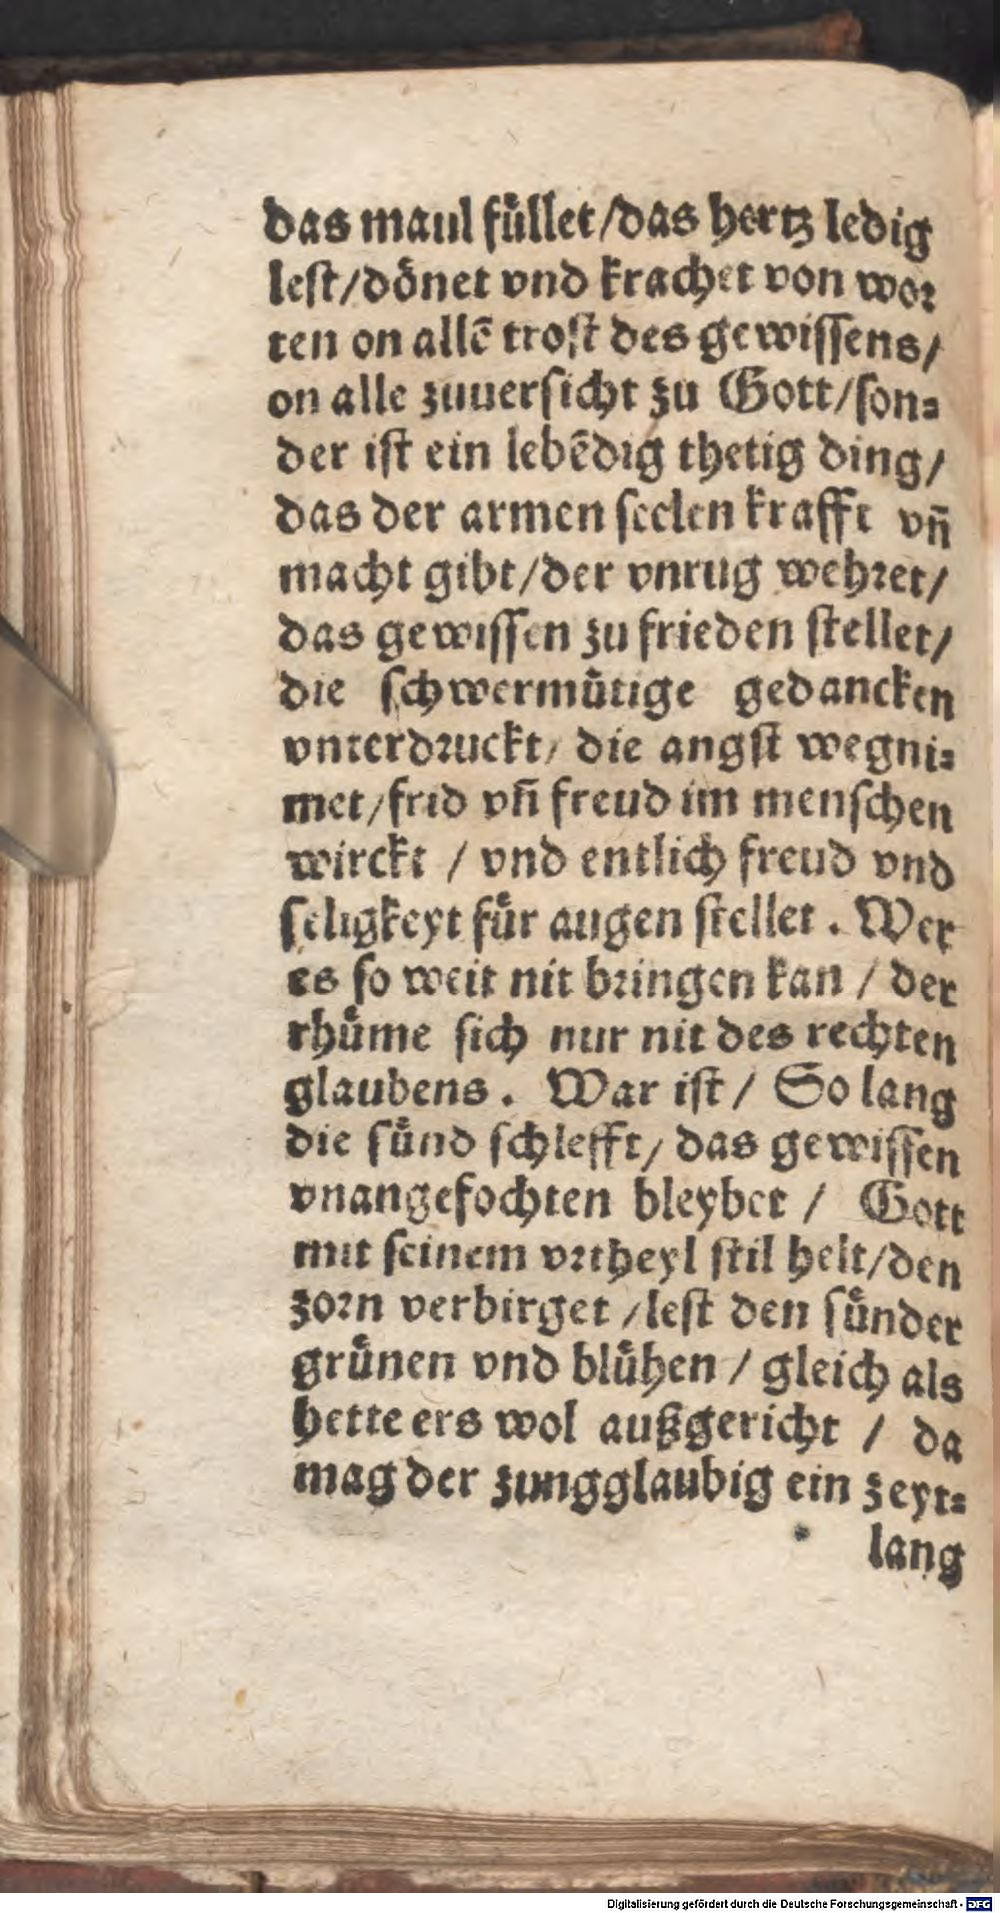 das maul fuͤllet/das hertz ledig
leſt/doͤnet vnd krachet von wor
ten on allē troſt des gewiſſens/
on alle zuuerſicht zu Gott/ſon⸗
der iſt ein lebēdig thetig ding/
das der armen ſeelen krafft vn̄
macht gibt/der vnrug wehret/
das gewiſſen zu frieden ſtellet/
die ſchwermuͤtige gedancken
vnterdruckt/ die angſt wegni⸗
met/frid vn̄ freud im menſchen
wirckt / vnd entlich freud vnd
ſeligkeyt fuͤr augen ſtellet. Wer
es ſo weit nit bringen kan / der
rhuͤme ſich nur nit des rechten
glaubens. War iſt / So lang
die ſuͤnd ſchlefft/ das gewiſſen
vnangefochten bleybet / Gott
mit ſeinem vrtheyl ſtil helt/den
zorn verbirget /leſt den ſuͤnder
gruͤnen vnd bluͤhen / gleich als
hette ers wol außgericht / da
mag der zungglaubig ein zeyt⸗
lang
Digitalisierung gefördert durch die Deutsche Forschungsgemeinschaft - DFG